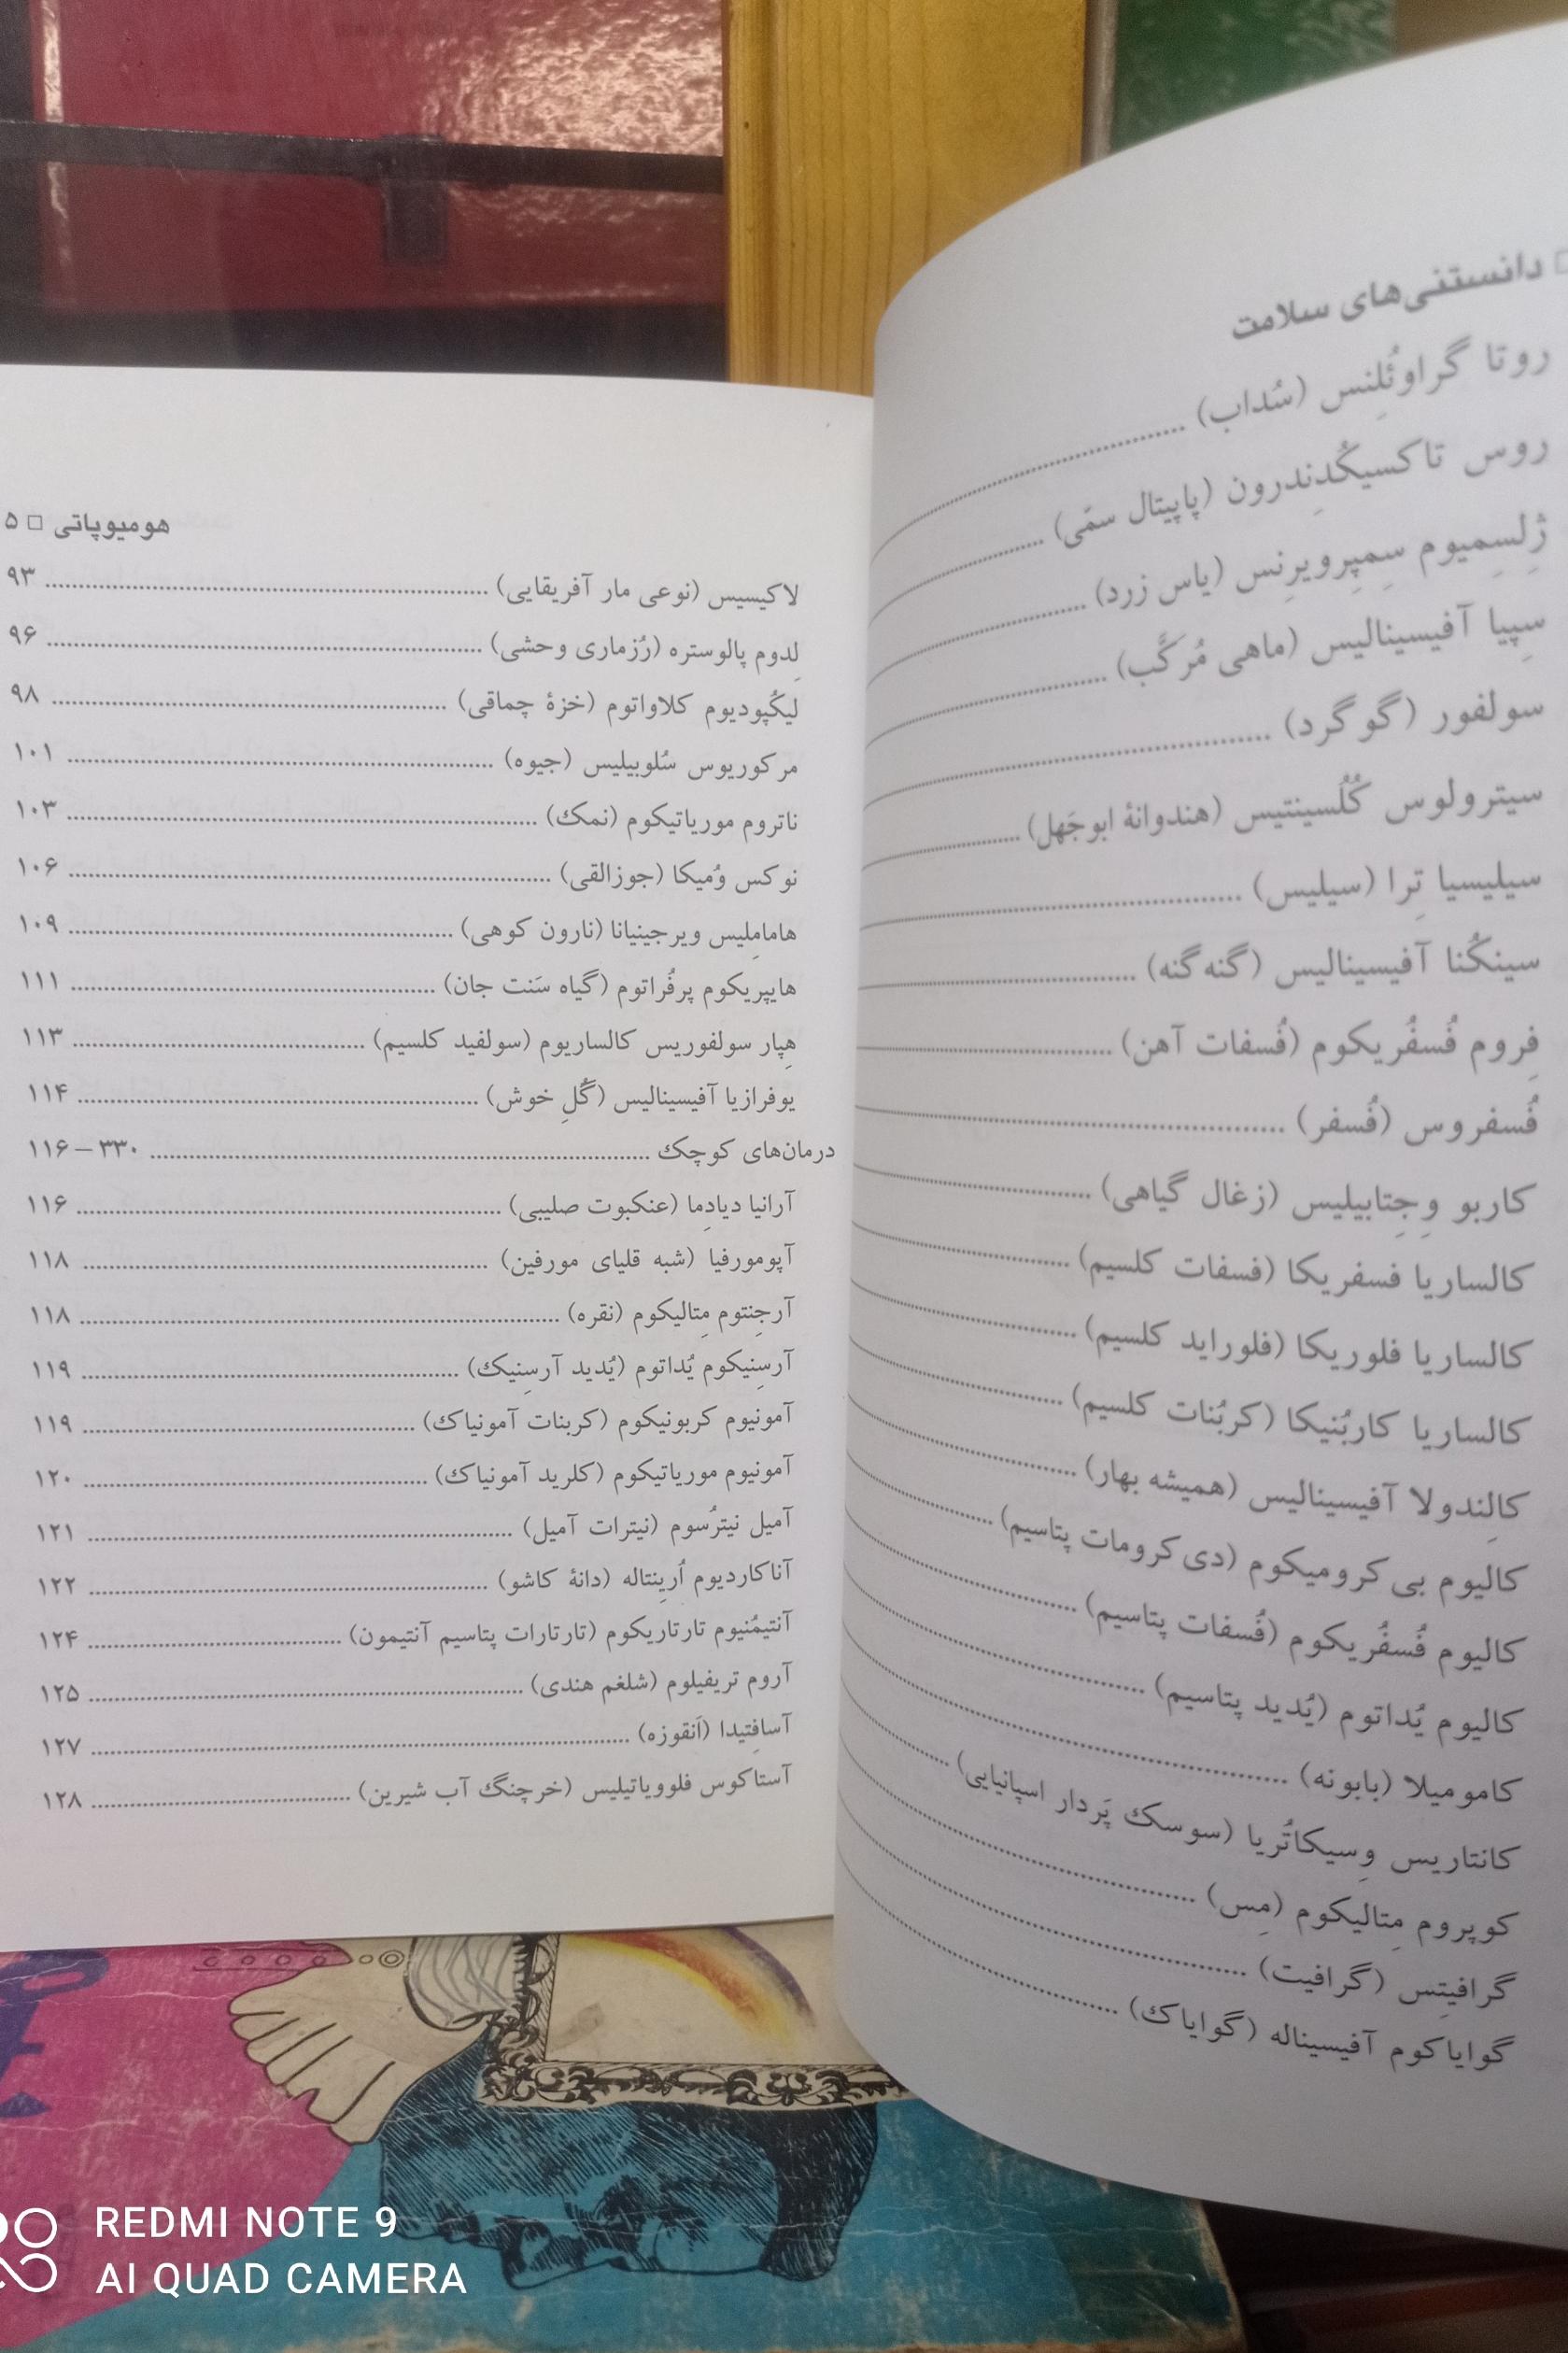 □ دانستنی‌های سلامت
روتا گراوئُلِنس (سُداب) ........................
روس تاکسیکُدِندرون (پاپیتال سمّی) ........................
ژِلسِمیوم سِمپِرویرِنس (یاس زرد) ........................
سِپیا آفیسینالیس (ماهی مُرکَّب) ........................
سولفور (گوگرد) ........................
سیترولوس کُلُسینتیس (هندوانهٔ ابوجَهل) ........................
سیلیسیا تِرا (سیلیس) ........................
سینکُنا آفیسینالیس (گنه‌گنه) ........................
فِروم فُسفُریکوم (فُسفات آهن) ........................
فُسفروس (فُسفر) ........................
کاربو وِجِتابیلیس (زغال گیاهی) ........................
کالساریا فسفریکا (فسفات کلسیم) ........................
کالساریا فلوریکا (فلوراید کلسیم) ........................
کالساریا کاربُنیکا (کربُنات کلسیم) ........................
کالِندولا آفیسینالیس (همیشه بهار) ........................
کالیوم بی‌کرومیکوم (دی‌کرومات پتاسیم) ........................
کالیوم فُسفُریکوم (فُسفات پتاسیم) ........................
کالیوم یُداتوم (یُدید پتاسیم) ........................
کامومیلا (بابونه) ........................
کانتاریس وِسیکاتُریا (سوسک پَردار اسپانیایی) ........................
کوپروم مِتالیکوم (مِس) ........................
گرافیتِس (گرافیت) ........................
گوایاکوم آفیسیناله (گوایاک) ........................
هومیوپاتی □ ۵
لاکیسیس (نوعی مار آفریقایی) ........................ ۹۳
لِدوم پالوستره (رُزماری وحشی) ........................ ۹۶
لیکُپودیوم کلاواتوم (خزهٔ چماقی) ........................ ۹۸
مرکوریوس سُلوبیلیس (جیوه) ........................ ۱۰۱
ناتروم موریاتیکوم (نمک) ........................ ۱۰۳
نوکس وُمیکا (جوزالقی) ........................ ۱۰۶
هامامِلیس ویرجینیانا (نارون کوهی) ........................ ۱۰۹
هایپریکوم پرفُراتوم (گیاه سَنت جان) ........................ ۱۱۱
هِپار سولفوریس کالساریوم (سولفید کلسیم) ........................ ۱۱۳
یوفرازیا آفیسینالیس (گُلِ خوش) ........................ ۱۱۴
درمان‌های کوچک ........................ ۱۱۶ – ۳۳۰
آرانیا دیادِما (عنکبوت صلیبی) ........................ ۱۱۶
آپومورفیا (شبه قلیای مورفین) ........................ ۱۱۸
آرجِنتوم مِتالیکوم (نقره) ........................ ۱۱۸
آرسِنیکوم یُداتوم (یُدید آرسِنیک) ........................ ۱۱۹
آمونیوم کربونیکوم (کربنات آمونیاک) ........................ ۱۱۹
آمونیوم موریاتیکوم (کلرید آمونیاک) ........................ ۱۲۰
آمیل نیترُسوم (نیترات آمیل) ........................ ۱۲۱
آناکاردیوم اُریِنتاله (دانهٔ کاشو) ........................ ۱۲۲
آنتیمُنیوم تارتاریکوم (تارتارات پتاسیم آنتیمون) ........................ ۱۲۴
آروم تریفیلوم (شلغم هندی) ........................ ۱۲۵
آسافِتیدا (آنقوزه) ........................ ۱۲۷
آستاکوس فلوویاتیلیس (خرچنگ آب شیرین) ........................ ۱۲۸
REDMI NOTE 9
AI QUAD CAMERA